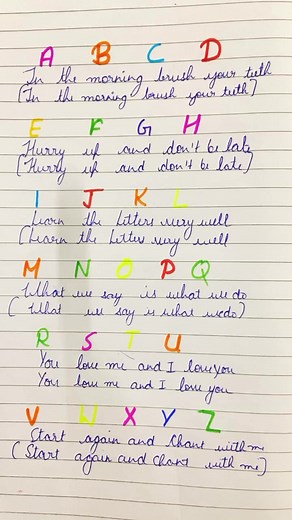 A B C D
In the morning brush your teeth
(In the morning brush your teeth)
E F G H
Hurry up and don't be late
(Hurry up and don't be late)
I J K L
Learn the letters very well
(Learn the letter very well
M N O P Q
What we say is what we do
( What we say is what we do)
R S T U
You love me and I love you
You love me and I love you
V W X Y Z
Start again and chant with me
(Start again and chant with me)